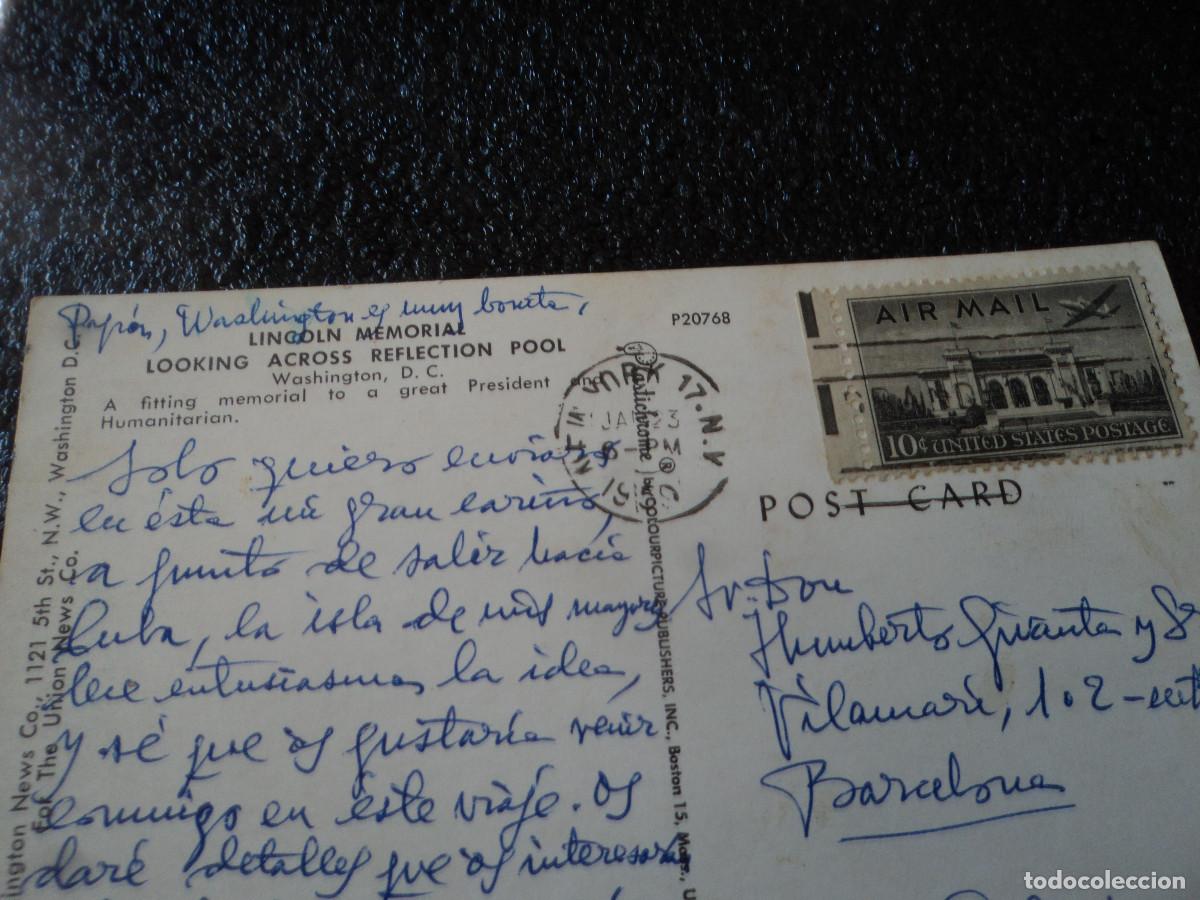 Papón, Washington es muy bonita,
LINCOLN MEMORIAL
LOOKING ACROSS REFLECTION POOL
Washington, D. C.
A fitting memorial to a great President and
Humanitarian.
P20768
Solo quiero enviaros
en ésta mi gran cariño,
a punto de salir hacia
Cuba, la isla de mis mayores
entusiasma la idea,
y sé que os gustaría venir
conmigo en éste viaje. Os
daré detalles que os interesara
ington News Co., 1121 5th St., N.W., Washington D.C.
For The Union News Co.
Plastichrome ® by COLOURPICTURE PUBLISHERS, INC., Boston 15, Mass., U
NEW YORK 17. N.Y.
JAN
AIR MAIL
10¢ UNITED STATES POSTAGE
POST CARD
Sr. Don
Humberto y
Vilamarí, 102-
Barcelona
todocoleccion